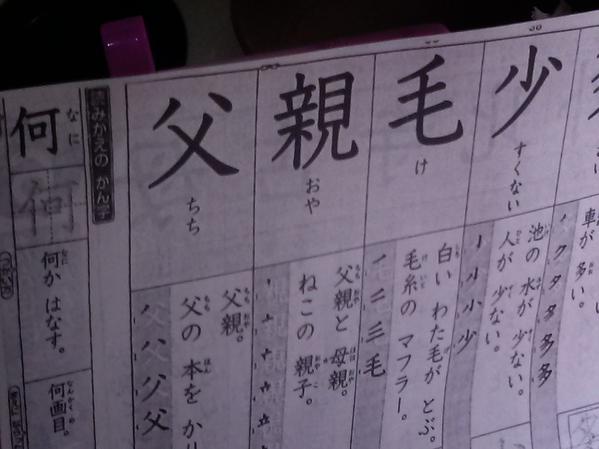 車が 多い。
ノ ク タ 多 多 多
少
すくない
池の 水が 少ない。
人が 少ない。
亅 小 小 少
毛
け
白い わた毛が とぶ。
毛糸の マフラー。
一 二 三 毛
親
おや
父親と 母親。
ねこの 親子。
父
ちち
父親。
父の 本を か
父 父
みかえの かん字
何
なに
何
何か はなす。
何画目。